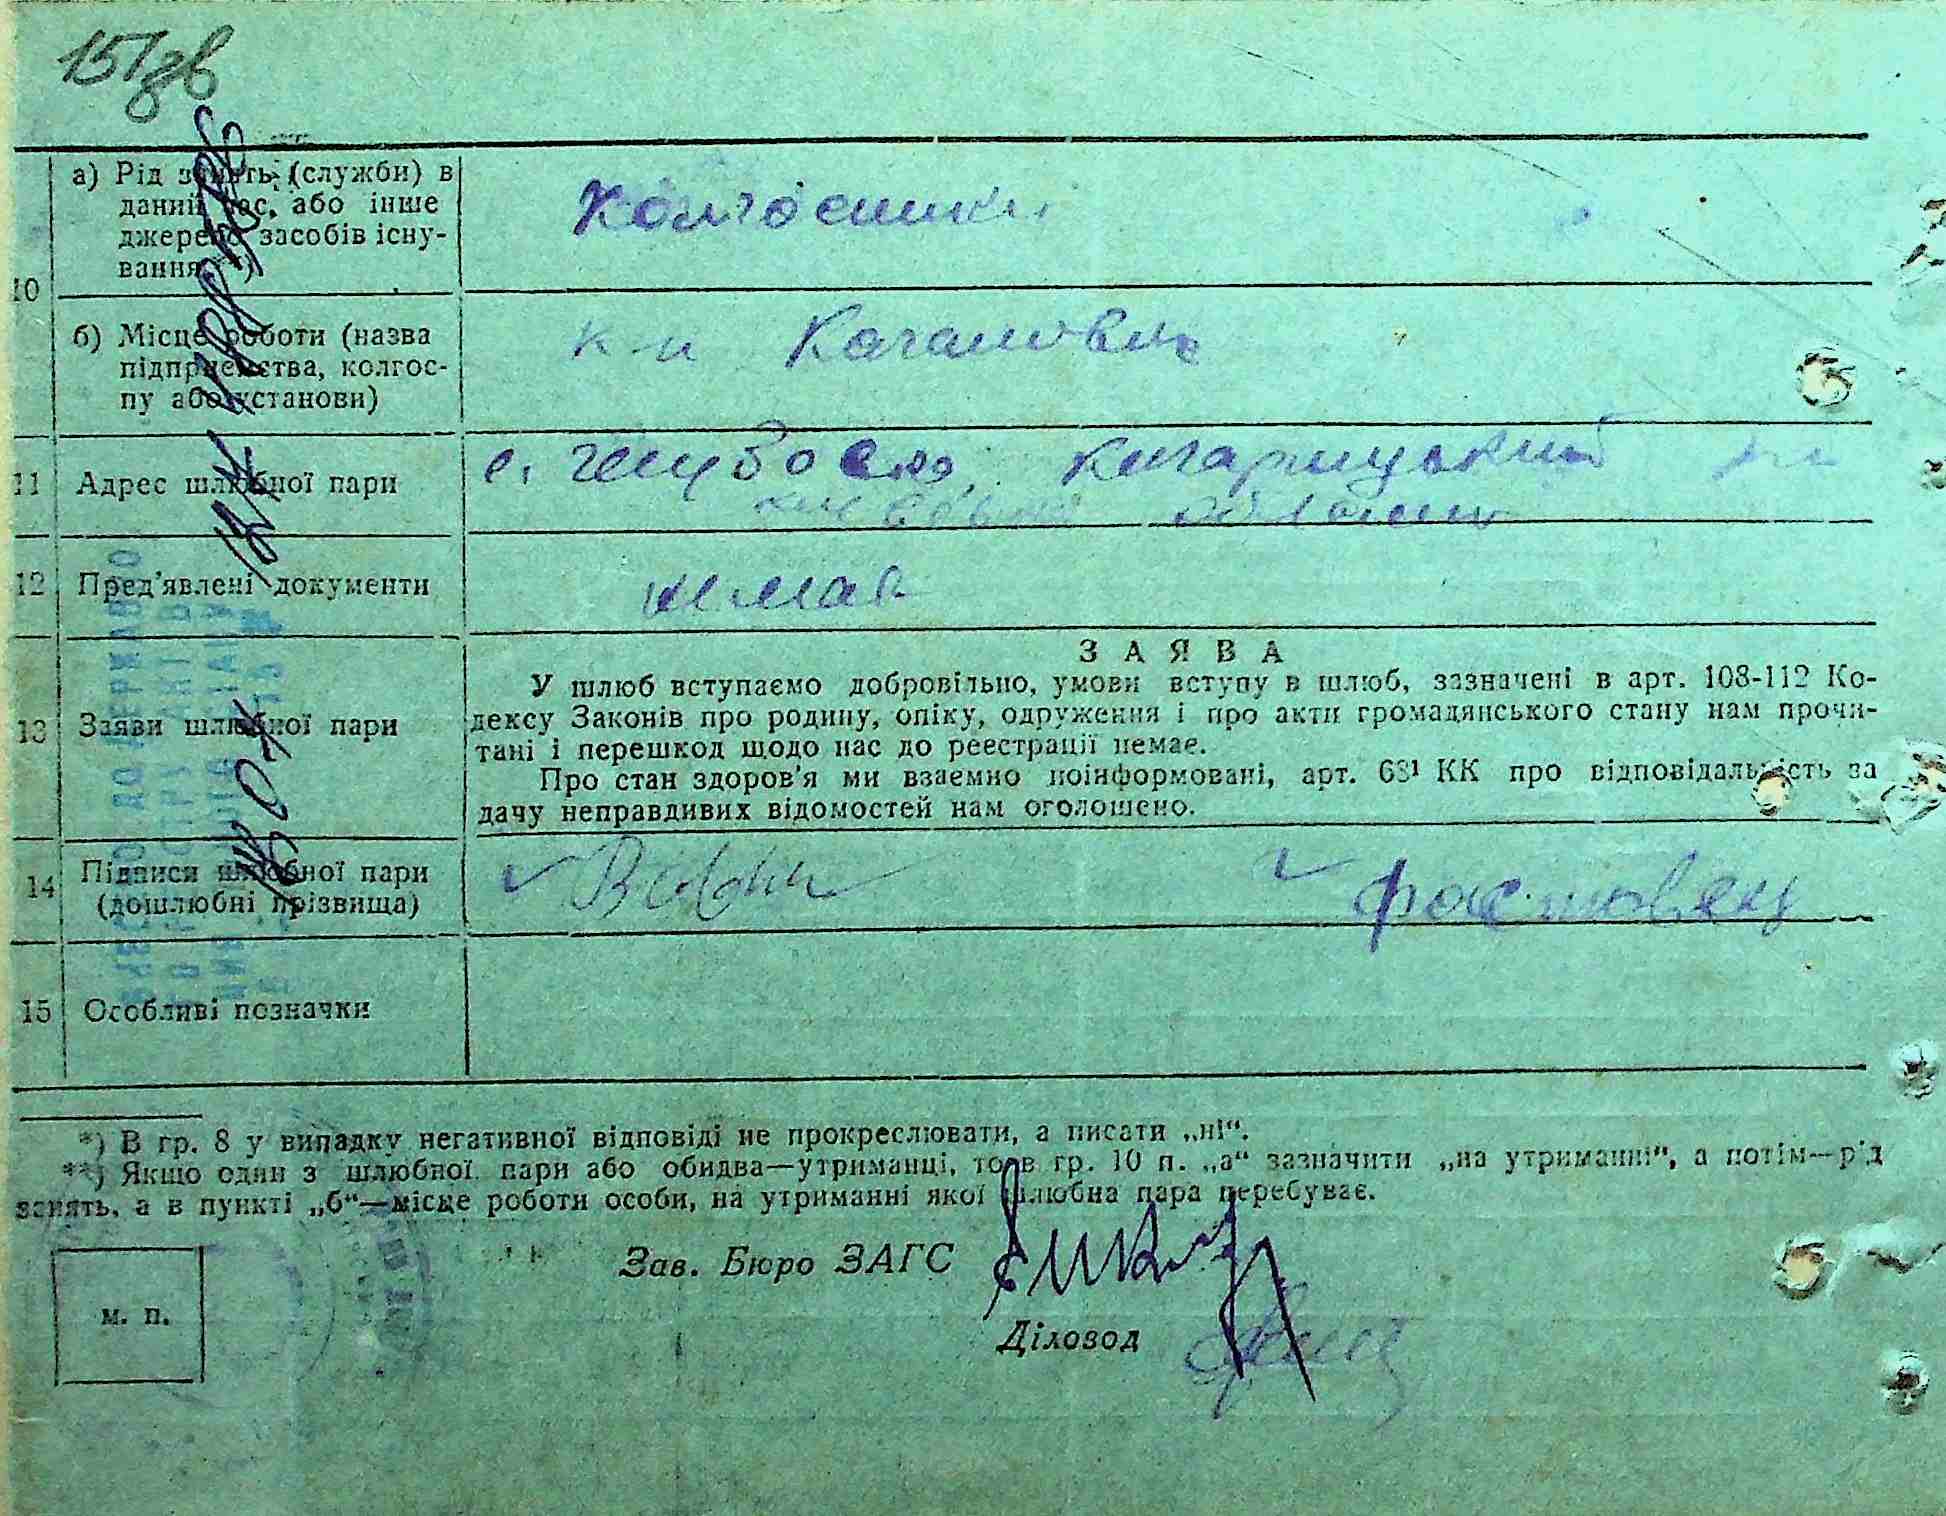 151зв
10
а) Рід занять (служби) в
даний час, або інше
джерело засобів існу-
вання **)
Колгоспники
б) Місце роботи (назва
підприємства, колгос-
пу або установи)
к-п Кагановича
11
Адрес шлюбної пари
с. Кагарлицький
київської області
12
Пред'явлені документи
немає
13
Заяви шлюбної пари
ЗАЯВА
У шлюб вступаємо добровільно, умови вступу в шлюб, зазначені в арт. 108-112 Ко-
дексу Законів про родину, опіку, одруження і про акти громадянського стану нам прочи-
тані і перешкод щодо нас до реєстрації немає.
Про стан здоров'я ми взаємно поінформовані, арт. 68¹ КК про відповідальність за
дачу неправдивих відомостей нам оголошено.
14
Підписи шлюбної пари
(дошлюбні прізвища)
Фастовець
15
Особливі позначки
*) В гр. 8 у випадку негативної відповіді не прокреслювати, а писати „ні“.
**) Якщо один з шлюбної пари або обидва—утриманці, то в гр. 10 п. „а“ зазначити „на утриманні“, а потім—рід
занять, а в пункті „б“—місце роботи особи, на утриманні якої шлюбна пара перебуває.
м. п.
Зав. Бюро ЗАГС
Діловод